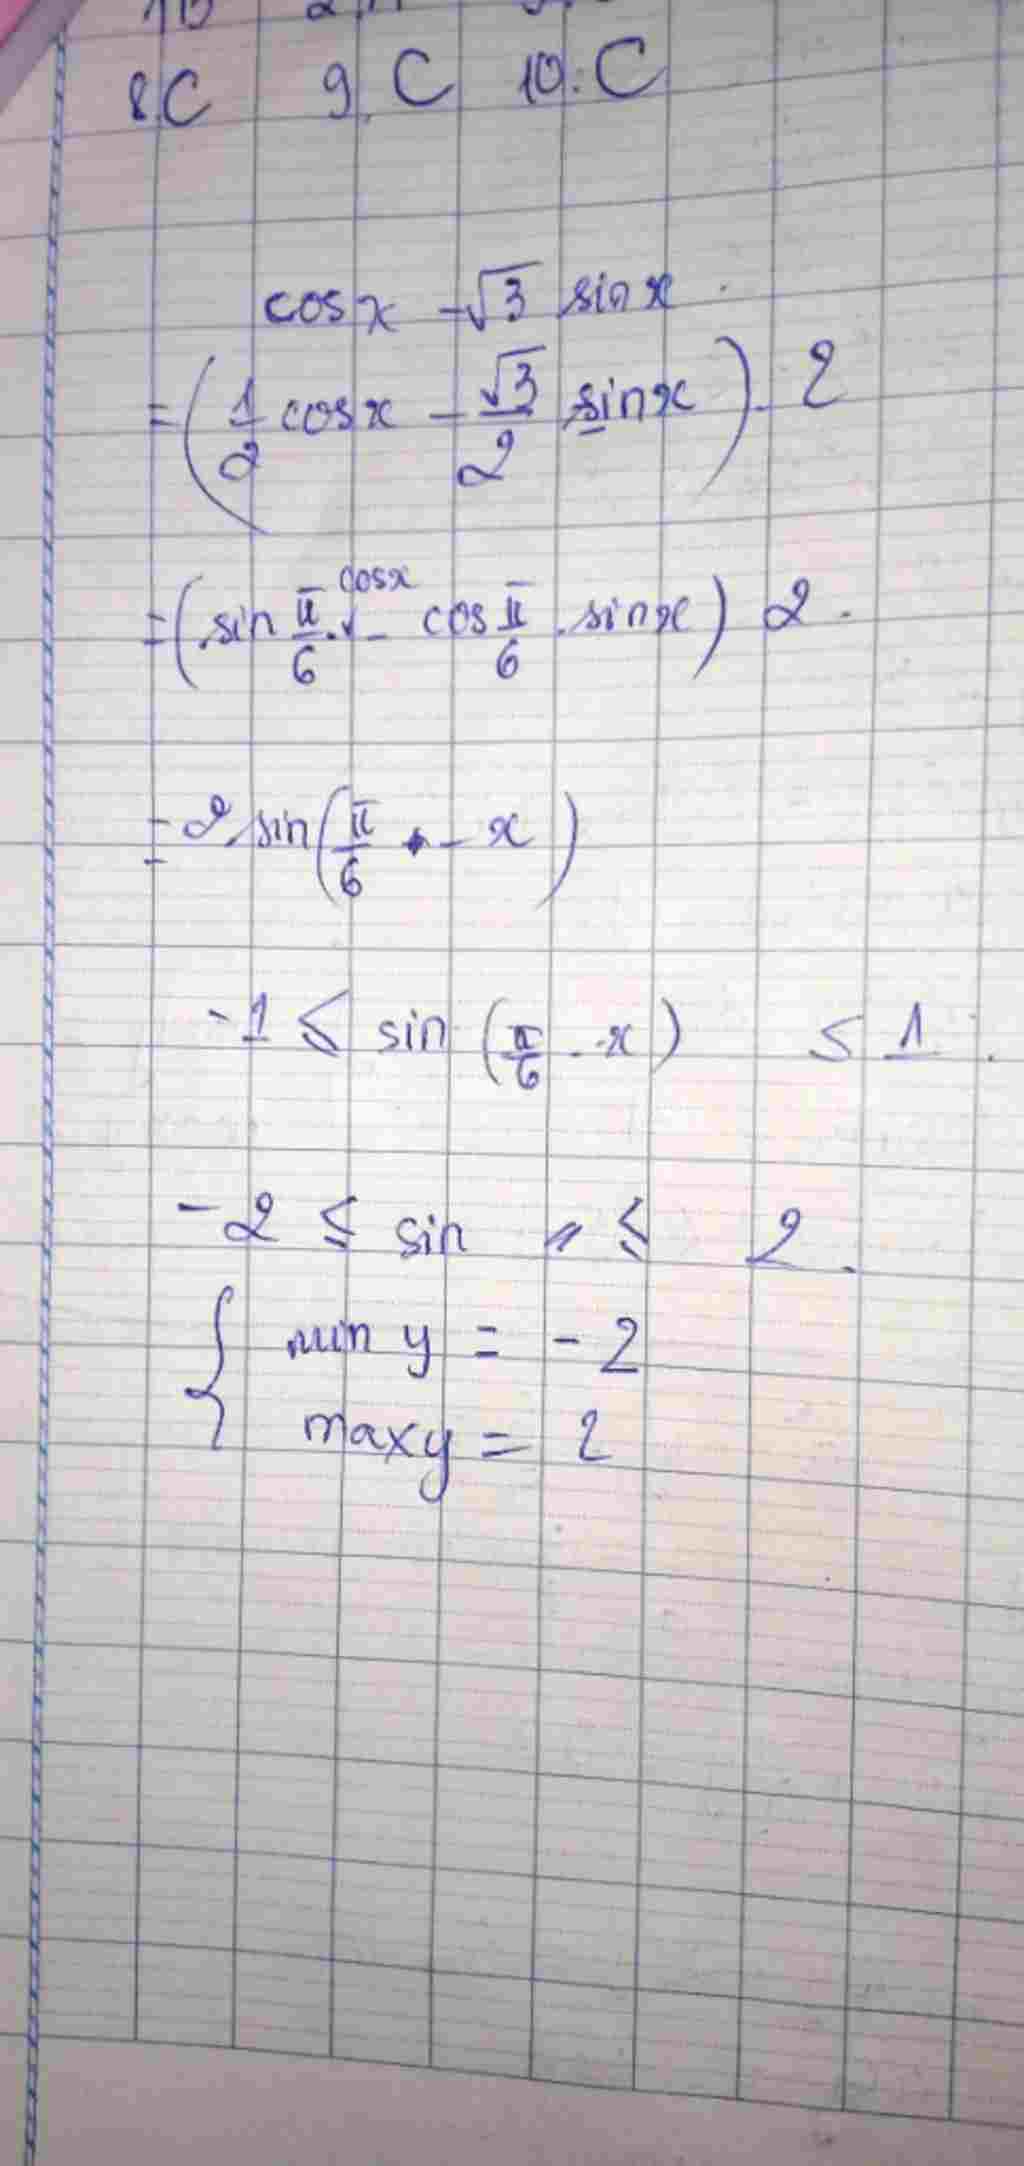 8.C 9.C 10.C
cosx - √3 sinx
= (1/2 cosx - √3/2 sinx). 2
= (sin π/6 . cosx - cos π/6 . sinx) 2.
= 2 sin(π/6 - x)
-1 ≤ sin (π/6 - x) ≤ 1.
-2 ≤ sin ″ ≤ 2.
{ min y = -2
max y = 2